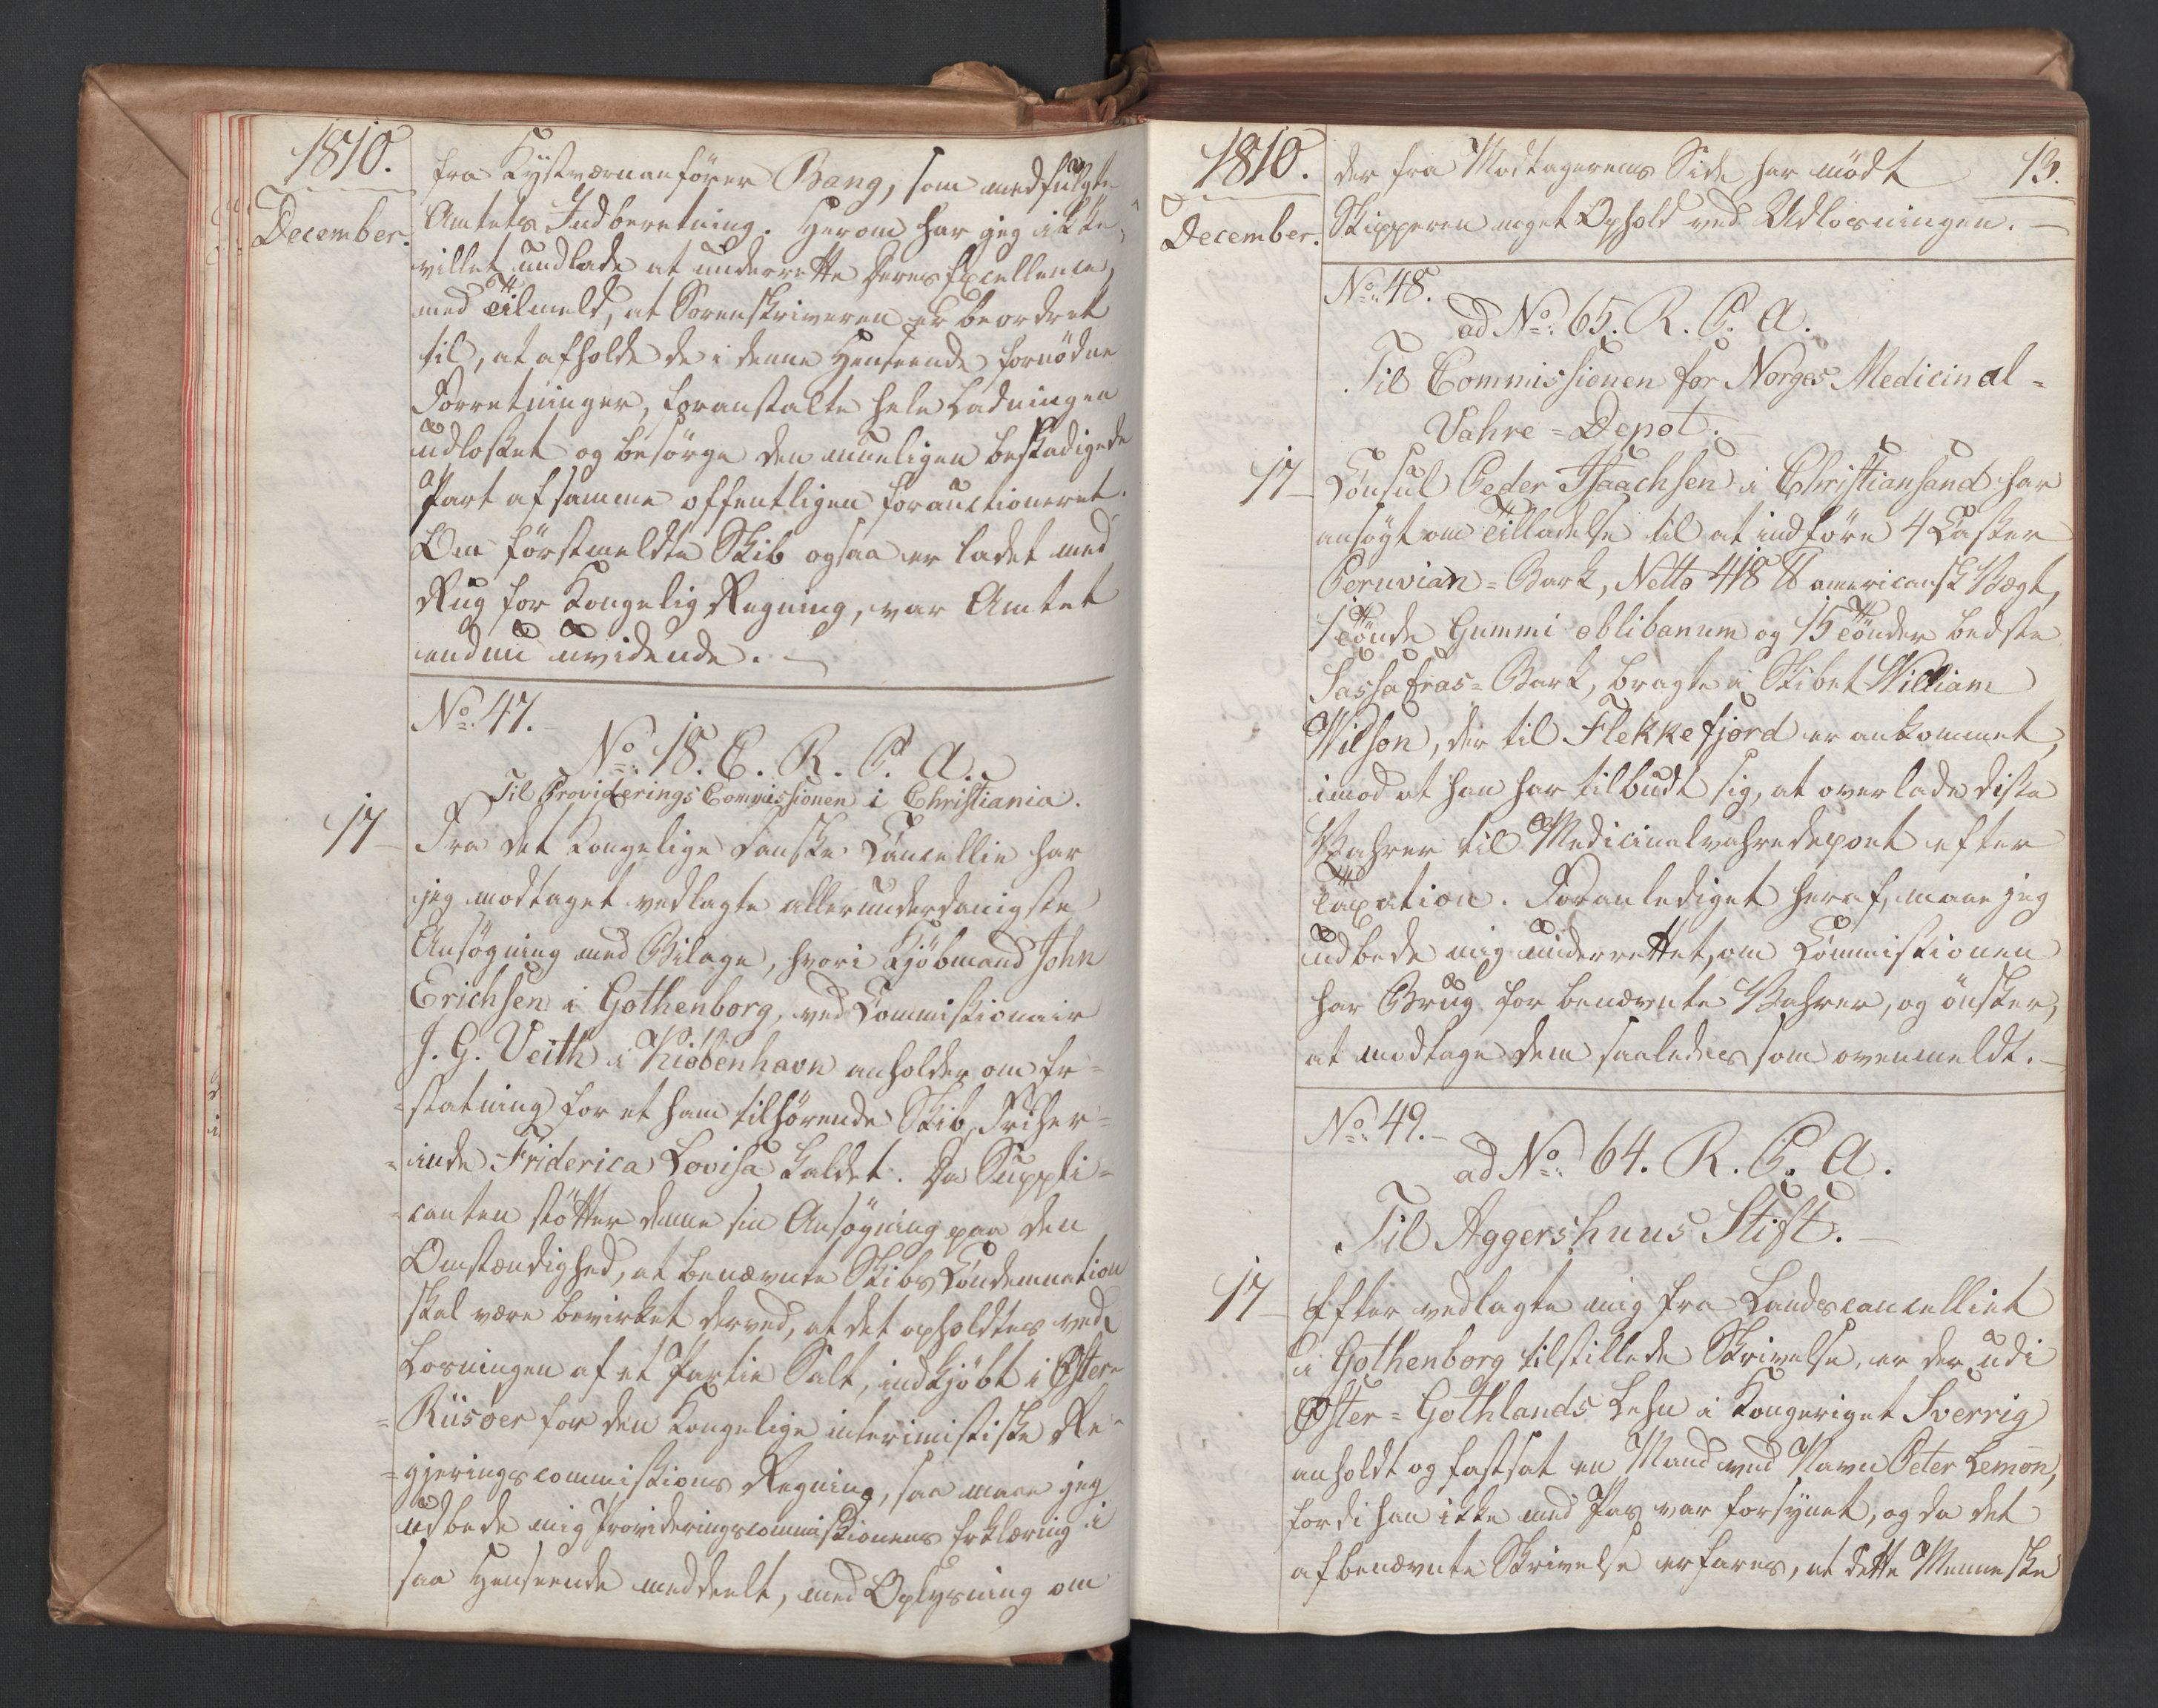 1810.
December.
fra Kystværnanförer Bang, som medfulgte
Amtets Indberetning. Herom har jeg ikke
villet undlade at underrette Deres Excellence,
med Tilmeld, at Sorenskriveren er beordret
til, at afholde de i denne Henseende fornödne
Forretninger, foranstalte hele Ladningen
udlosset og besörge den mueligen beskadigede
Part af samme offentligen forauctioneret.
Om förstmeldte Skib ogsaa er ladet med
Rug for Kongelig Regning, var Amtet
endnu uvidende. —
No. 47.
No. 18. E. R. C. A.
Til Providerings Commissionen i Christiania.
17 — Fra det Kongelige danske Cancellie har
jeg modtaget vedlagte allerunderdanigste
Ansögning med Bilage, hvori Kjöbmand John
Erichsen i Gothenborg, ved Commissionair
J. G. Veith i Kiöbenhavn anholder om Er=
=statning for et ham tilhörende Skib, Friher=
=inde Friderica Lovisa kaldet. Da Suppli=
=canten stötter denne sin Ansögning paa den
Omstændighed, at benævnte Skibs Condemnation
skal være bevirket derved, at det opholdtes ved
Losningen af et Partie Salt, indkjöbt i Öster=
=Riisöer for den Kongelige interimistiske Re=
=gjeringscommissions Regning, saa maae jeg
udbede mig Provideringscommissionens Erklæring i
saa Henseende meddeelt, med Oplysning om
1810.
December.
13.
der fra Modtagerens Side har mödt
Skipperen noget Ophold ved Udlosningen. —
No. 48.
ad No. 65. R. C. A.
Til Commissionen for Norges Medicinal=
Vahre=Depot. —
17 — Consul Peder Isaachsen i Christiansand har
ansögt om Tilladelse til at indföre 4 Kasser
Peruvian=Bark, Netto 418 ℔ americansk Vægt,
1 Tönde Gummi oblibanum og 15 Tönder bedste
Sassafras=Bark, bragte i Skibet William
Wilson, der til Flekkefjord er ankommet,
imod at han har tilbudt sig, at overlade disse
Vahrer til Medicinalvahredepoet efter
Taxation. Foranlediget heraf, maae jeg
udbede mig underrettet, om Commissionen
har Brug for benævnte Vahrer, og önsker,
at modtage dem saaledes som ovenmeldt. —
No. 49. —
ad No. 64. R. C. A.
Til Aggershuus Stift. —
17 — Efter vedlagte mig fra Landscancelliet
i Gothenborg tilstillede Skrivelse, er der udi
Öster=Gothlands Lehn i Kongeriget Sverrig
anholdt og fastsat en Mand ved Navn Peter Lemon,
fordi han ikke med Pas var forsynet, og da det
af benævnte Skrivelse erfares, at dette Menneske